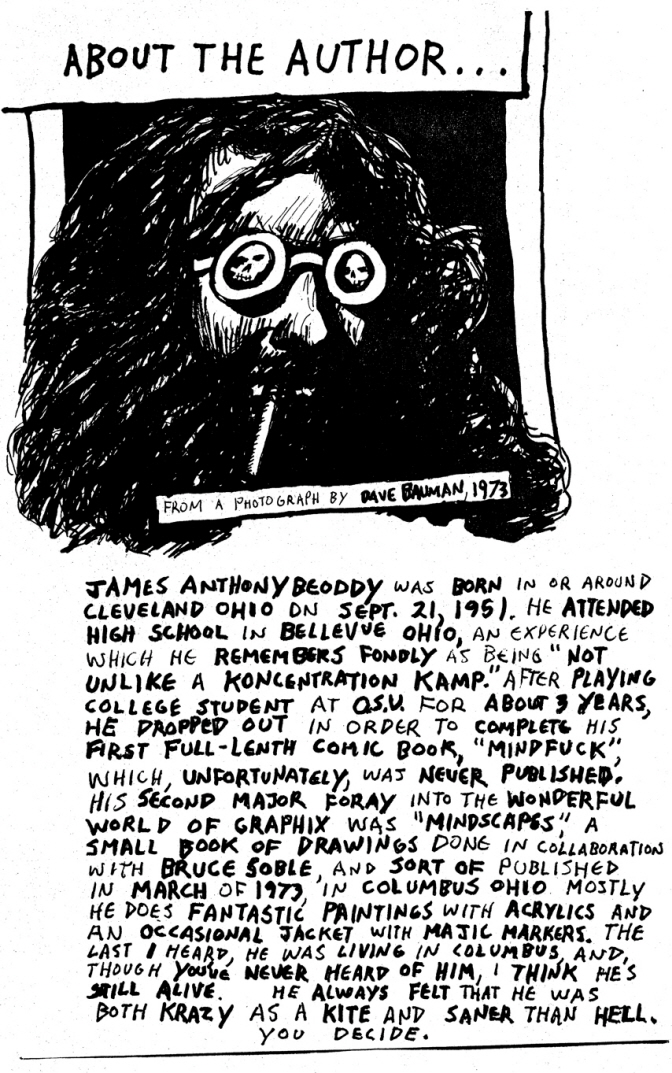 ABOUT THE AUTHOR...
FROM A PHOTOGRAPH BY DAVE BAUMAN, 1973
JAMES ANTHONY BEODDY WAS BORN IN OR AROUND
CLEVELAND OHIO ON SEPT. 21, 1951. HE ATTENDED
HIGH SCHOOL IN BELLEVUE OHIO, AN EXPERIENCE
WHICH HE REMEMBERS FONDLY AS BEING "NOT
UNLIKE A KONCENTRATION KAMP." AFTER PLAYING
COLLEGE STUDENT AT O.S.U. FOR ABOUT 3 YEARS,
HE DROPPED OUT IN ORDER TO COMPLETE HIS
FIRST FULL-LENTH COMIC BOOK, "MINDFUCK",
WHICH, UNFORTUNATELY, WAS NEVER PUBLISHED.
HIS SECOND MAJOR FORAY INTO THE WONDERFUL
WORLD OF GRAPHIX WAS "MINDSCAPES," A
SMALL BOOK OF DRAWINGS DONE IN COLLABORATION
WITH BRUCE SOBLE, AND SORT OF PUBLISHED
IN MARCH OF 1973, IN COLUMBUS OHIO. MOSTLY
HE DOES FANTASTIC PAINTINGS WITH ACRYLICS AND
AN OCCASIONAL JACKET WITH MAJIC MARKERS. THE
LAST I HEARD, HE WAS LIVING IN COLUMBUS, AND,
THOUGH YOUVE NEVER HEARD OF HIM, I THINK HE'S
STILL ALIVE. HE ALWAYS FELT THAT HE WAS
BOTH KRAZY AS A KITE AND SANER THAN HELL.
YOU DECIDE.